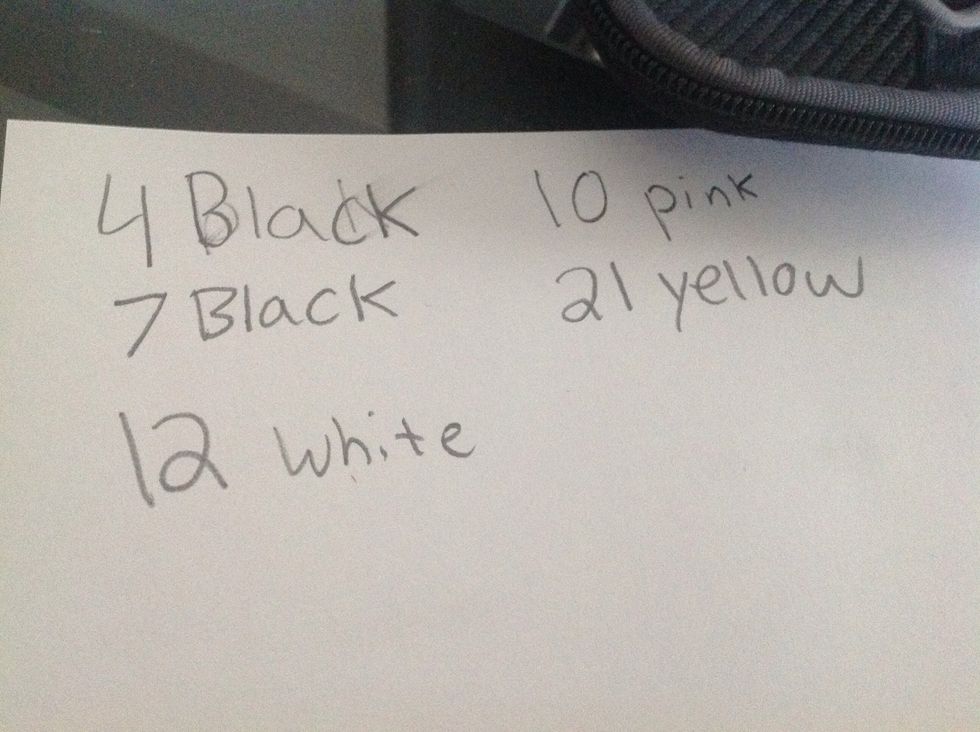 4 Black 10 pink
7 Black 21 yellow
12 white